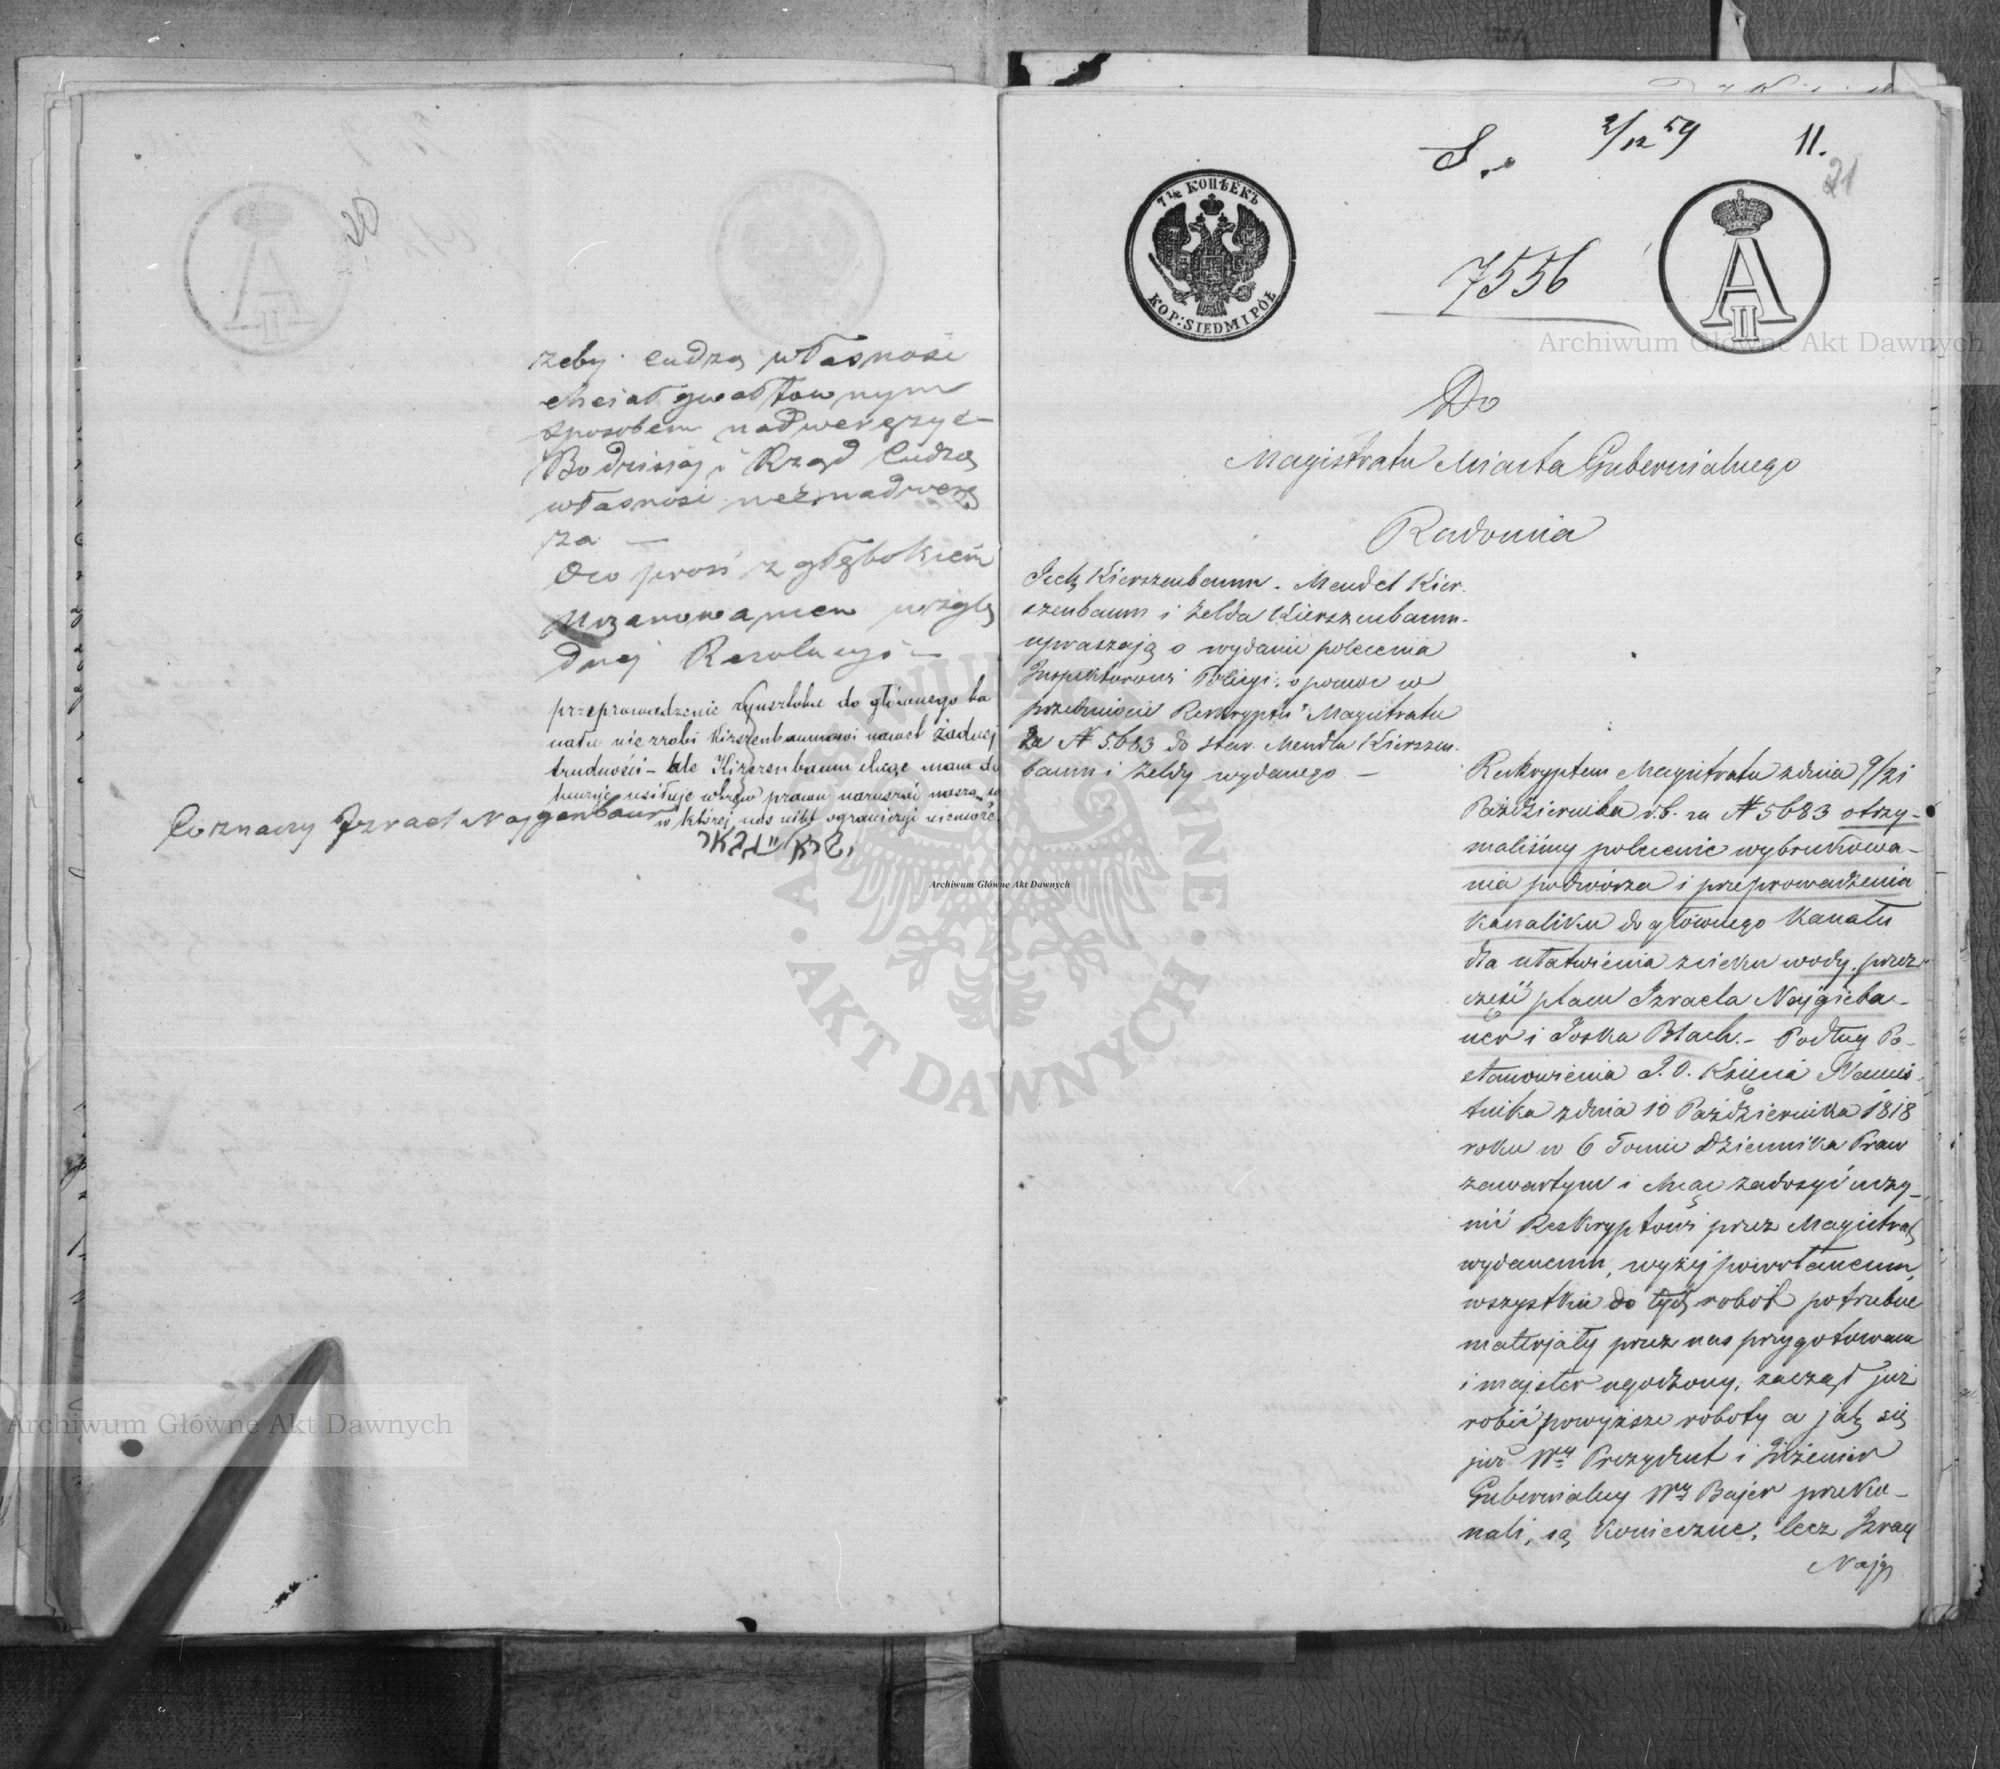 20
żeby cudzą własność
chciał gwałtownym
sposobem nadweręzyć
Bo dzisiaj i Rząd cudzą
własność nie nadwerę
za —
Oco prosi z głębokiem
Uszanowaniem wzglę
dnej Rezolucyi —
przeprowadzenie rynsztoku do głównego ka
nału nie zrobi Kirszenbaumowi nawet żadnej
trudności – ale Kirszenbaum chcąc nam do
kuczyć usiłuje wbrew prawu naruszać naszą
w której nas nikt ograniczyć niemoże
Co znaczy Izrael Najgenbaur
S.
2/12 59
11.
21
7 1/2 КОПѢЕКЪ
KOP: SIEDM I PÓŁ
7556
A II
Do
Magistratu Miasta Gubernialnego
Radomia
Icek Kierszenbaum. Mendel Kier.
szenbaum i Zelda Kierszenbaum
upraszają o wydanie polecenia
Inspektorowi Policyi, o pomoc w
przedmiocie Reskryptu Magistratu
Za N 5683 do star. Mendla Kierszen.
baum i Zeldy wydanego —
Reskryptem Magistratu z dnia 9/21
Października r.b. za N 5683 otrzy-
maliśmy polecenie wybrukowa-
nia podwórza i przeprowadzenia
kanaliku do głównego Kanału
dla ułatwienia ścieku wody, przez
część placu Izraela Najgieba-
uer i Joska Blach. – Podług Po-
stanowienia J. O. Księcia Namies
tnika z dnia 10 Października 1818
roku w 6 Tomie Dziennika Praw
zawartym i chcąc zadosyć uczy-
nić Reskryptowi przez Magistrat
wydanemu, wyżej powołanemu,
wszystkie do tych robót potrzebne
materjały przez nas przygotowane
i majster ugodzony, zaczął już
robić powyższe roboty a jak się
już Wny Prezydent i Inżenier
Gubernialny Wny Bajer przeko-
nali, są konieczne, lecz Izrael
Najg
Archiwum Główne Akt Dawnych
Archiwum Główne Akt Dawnych
Archiwum Główne Akt Dawnych
ARCHIWUM GŁÓWNE · AKT DAWNYCH ·